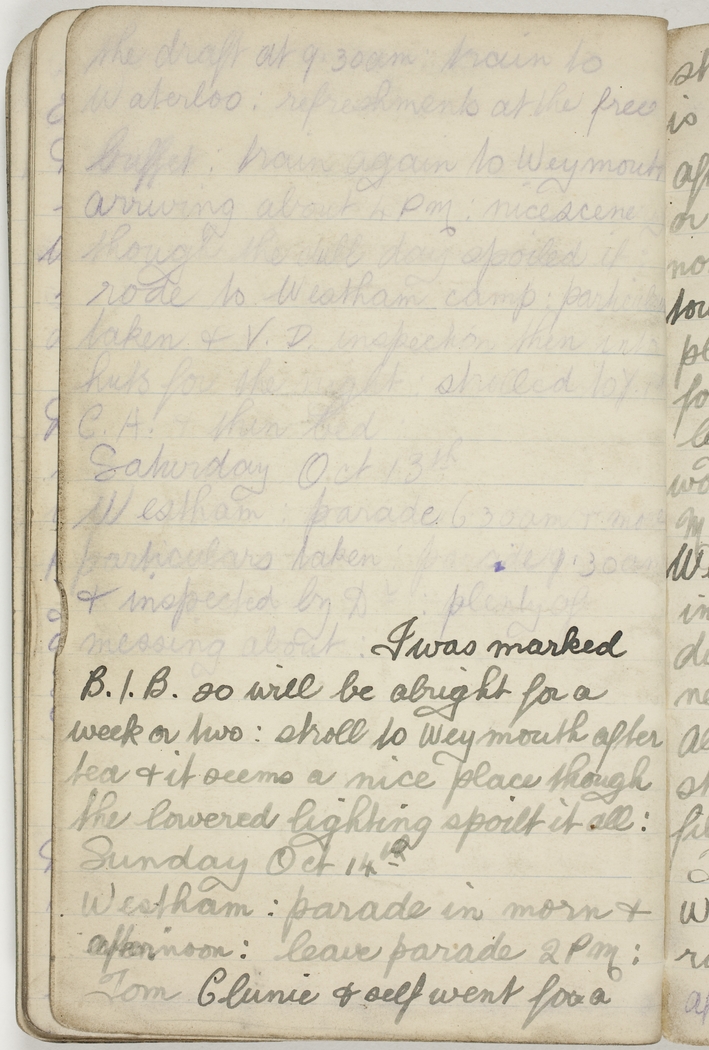 the draft at 9.30am: train to
Waterloo: refreshments at the free
buffet: train again to Weymouth
arriving about 4 PM: nice scene
though the day spoiled it
rode to Westham camp: particulars
taken & V. D. inspection then into
huts for the night strolled to Y.
C.A. & then bed
Saturday Oct 13th
Westham: parade 6 30am
particulars taken parade 9.30am
& inspected by Dr: plenty of
messing about. I was marked
B.1.B. so will be alright for a
week or two: stroll to Weymouth after
tea & it seems a nice place though
the lowered lighting spoilt it all:
Sunday Oct 14th
Westham: parade in morn &
afternoon: leave parade 2 PM:
Tom Clunie & self went for a